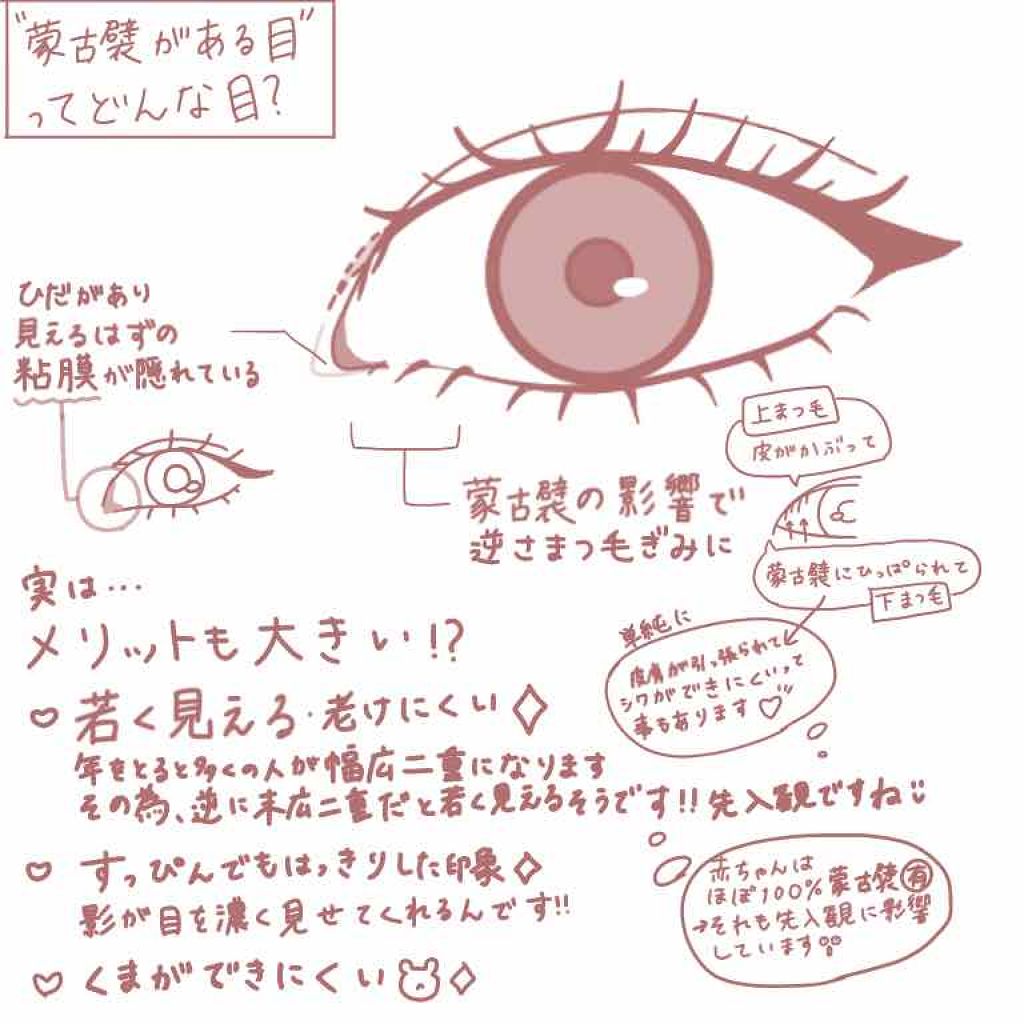 "蒙古襞がある目"
ってどんな目?
ひだがあり
見えるはずの
粘膜が隠れている
蒙古襞の影響で
逆さまつ毛ぎみに
上まつ毛
皮がかぶって
蒙古襞にひっぱられて
下まつ毛
単純に
皮膚が引っ張られて
シワができにくいって
事もあります♡
実は…
メリットも大きい!?
♡ 若く見える・老けにくい✧
年をとると多くの人が幅広二重になります
その為、逆に末広二重だと若く見えるそうです!! 先入観ですね
♡ すっぴんでもはっきりした印象✧
影が目を濃く見せてくれるんです!!
♡ くまができにくい✧
赤ちゃんは
ほぼ100%蒙古襞㊒
→それも先入観に影響
しています